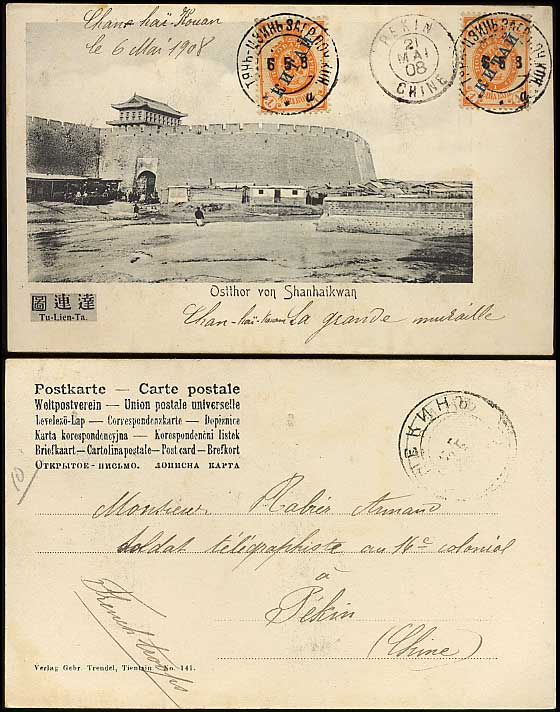 Chan-haï-Kouan
le 6 Mai 1908
ТЯНЬ-ЦЗИНЬ ЗАГР. ПОЧ. КОН.
6 5 8
а
КИТАЙ
PEKIN
21
MAI
08
CHINE
ТЯНЬ-ЦЗИНЬ ЗАГР. ПОЧ. КОН.
6 5 8
а
КИТАЙ
Ostthor von Shanhaikwan
圖連達
Tu-Lien-Ta.
Chan-haï-Kouan La grande muraille
Postkarte — Carte postale
Weltpostverein — Union postale universelle
Levelező-Lap — Correspondenzkarte — Dopisnice
Karta korespondencyjna — Korespondenční listek
Briefkaart — Cartolina postale — Post card — Brefkort
ОТКРЫТОЕ - ПИСЬМО. ДОПИСНА КАРТА
ПЕКИНЪ
10
Monsieur Rabier Armand
Soldat télégraphiste au 16e colonial
à
Pékin
(Chine)
French troops
Verlag Gebr. Trendel, Tientsin No. 141.